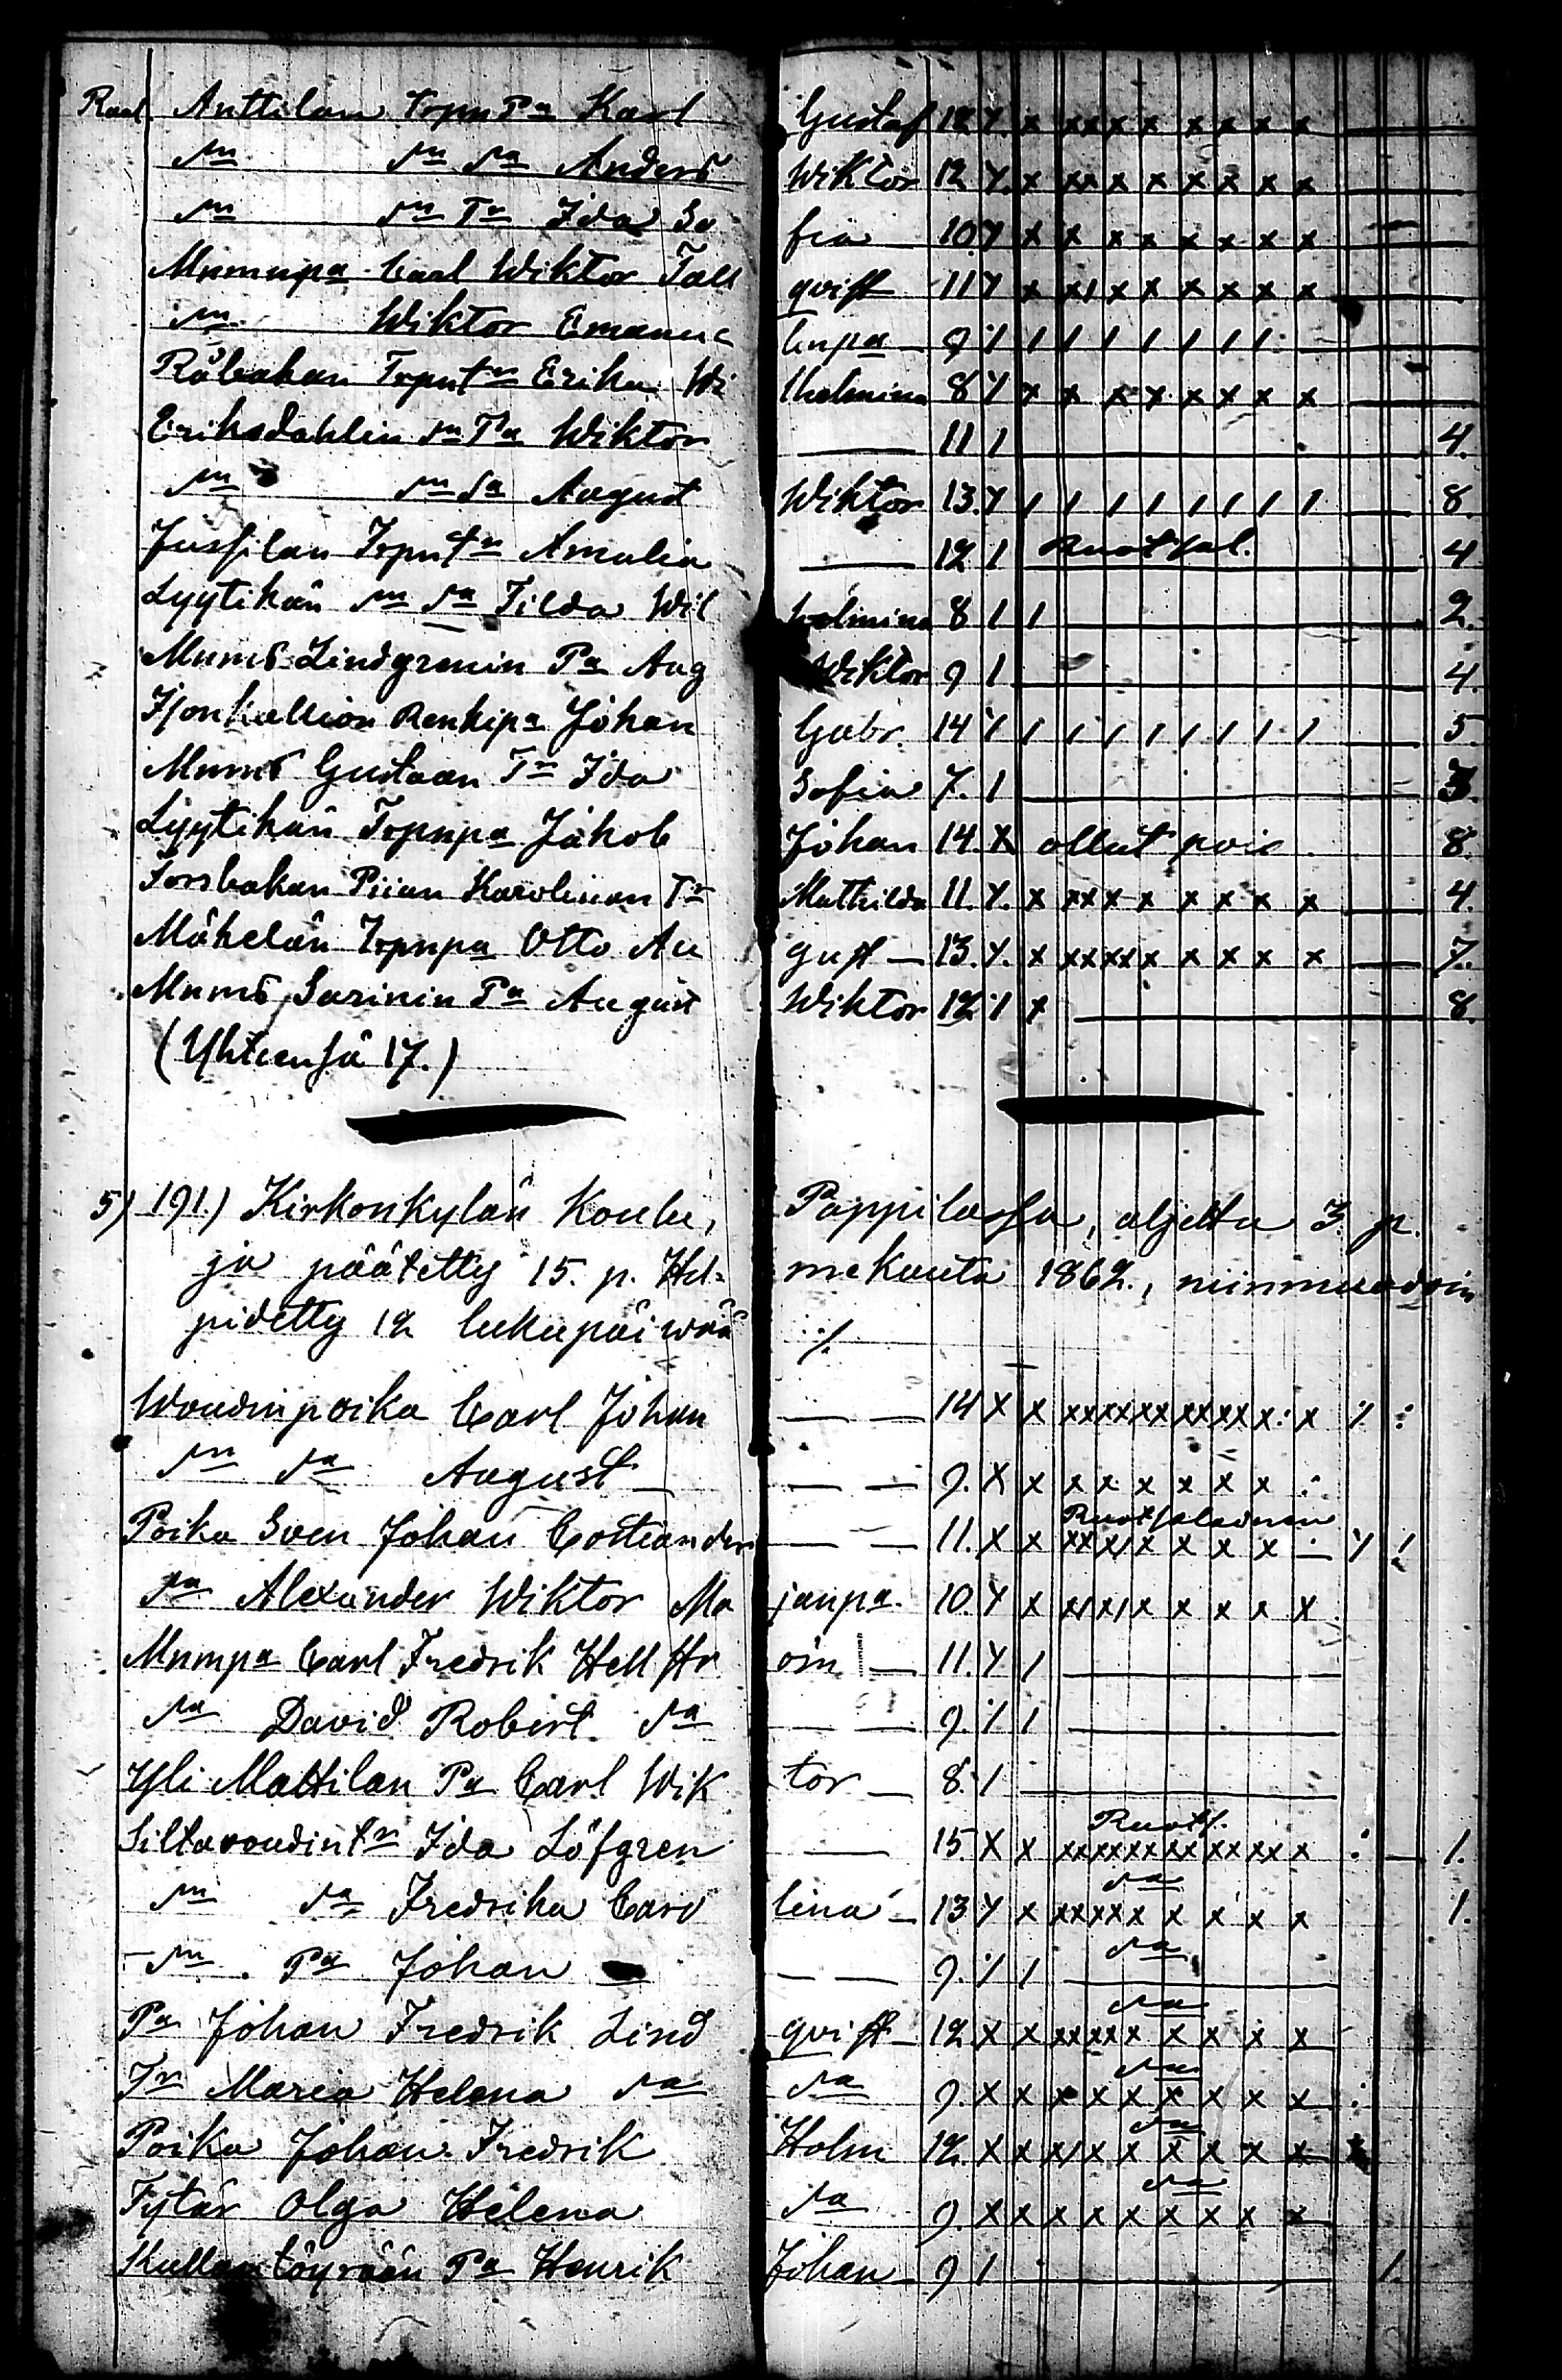 Anttilan Topn Pa Karl Gustaf 12 Y. x xx x x x x x x
sn sn sa Anders Wiktor 12 Y. x xx x x x x x x
sn sn Tr Ida So fia 10 Y x x x x x x x x
Mnmnpa Carl Wiktor Tall qvist 11 Y x x/ x x x x x x
sn Wiktor Emanue linpa 9 / / / / / / / / /
Råbakan Topntr Erika Wi lhelmina 8 Y x x x x x x x x
Eriksdahlin sn Pa Wiktor — 11 / 4.
sn sn sa August Wiktor 13. Y / / / / / / / / 8.
Jussilan Topntr Amalia — 12 / Ruotsal. 4
Lyytikän sn sa Tilda Wil helmina 8 / / 2.
Mnms Lindgrenin Pa Aug Wiktor 9 / 4.
Isonkallion Renkipa Johan Gabr. 14 Y / / / / / / / / 5
Mnms Gustaan Tr Ida Sofia 7. / 3.
Lyytikän Topnpa Jakob Johan 14. X ollut pois 8.
Torsbakan Piian Karolinan Tr Mathilda 11. Y. x xx x x x x x x 4.
Mäkelän Topnpa Otto Au gust — 13. Y. x xx xx x x x x x 7.
Mnms Sarinin Pa August Wiktor 12 / x 8.
(Yhteensä 17.)
5) 191.) Kirkonkylän Koulu, Pappilassa, aljettu 3. p.
ja päätetty 15. p. Hel= mekuuta 1862., niinmuodoin
pidetty 12 lukupäiwää ·/.
Woudinpoika Carl Johan — — 14 X x xx xx xx xx xx x x
sn sa August — — 9. X x x x x x x x
Poika Sven Johan Costiander — — 11. X x Ruotsalainen xx x/ x x x x
sa Alexander Wiktor Ma janpa. 10. Y x x/ x/ x x x x x
Mnmpa Carl Fredrik Hellstr öm — 11. Y /
sa David Robert sa — — 9. / /
Yli Mattilan Pa Carl Wik tor — 8. /
Siltavoudintr Ida Löfgren — 15. X x Ruots. xx xx xx xx xx x x 1.
sn sa Fredrika Caro lina — 13 Y x sa xx xx x x x x x 1.
sn Pa Johan — — 9. / / sa
Pa Johan Fredrik Lind qvist — 12 X x sa xx xx x x x x x
Tr Maria Helena sa sa 9. X x sa x x x x x x x
Poika Johan Fredrik Holm 12. X x sa x/ x x x x x x
Tytär Olga Helena sa 9. X x sa x x x x x x x
Kullantöyrään Pa Henrik Johan — 9 / 1.